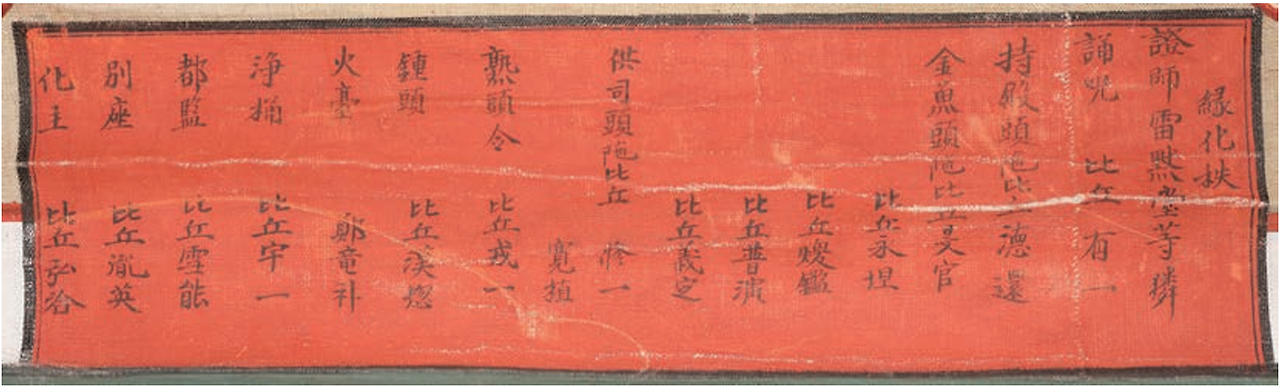 緣化秩
證師雷默堂等璘
誦呪 比丘 有一
持殿頭陁比丘德還
金魚頭陁比丘旻官
比丘永坦
比丘煖鑑
比丘普演
比丘義定
供司頭陁比丘 修一
寬植
熟頭令 比丘戒一
鍾頭 比丘漢燦
火臺 鄭竜補
浄桶 比丘宇一
都監 比丘雪能
別座 比丘胤英
化主 比丘弘